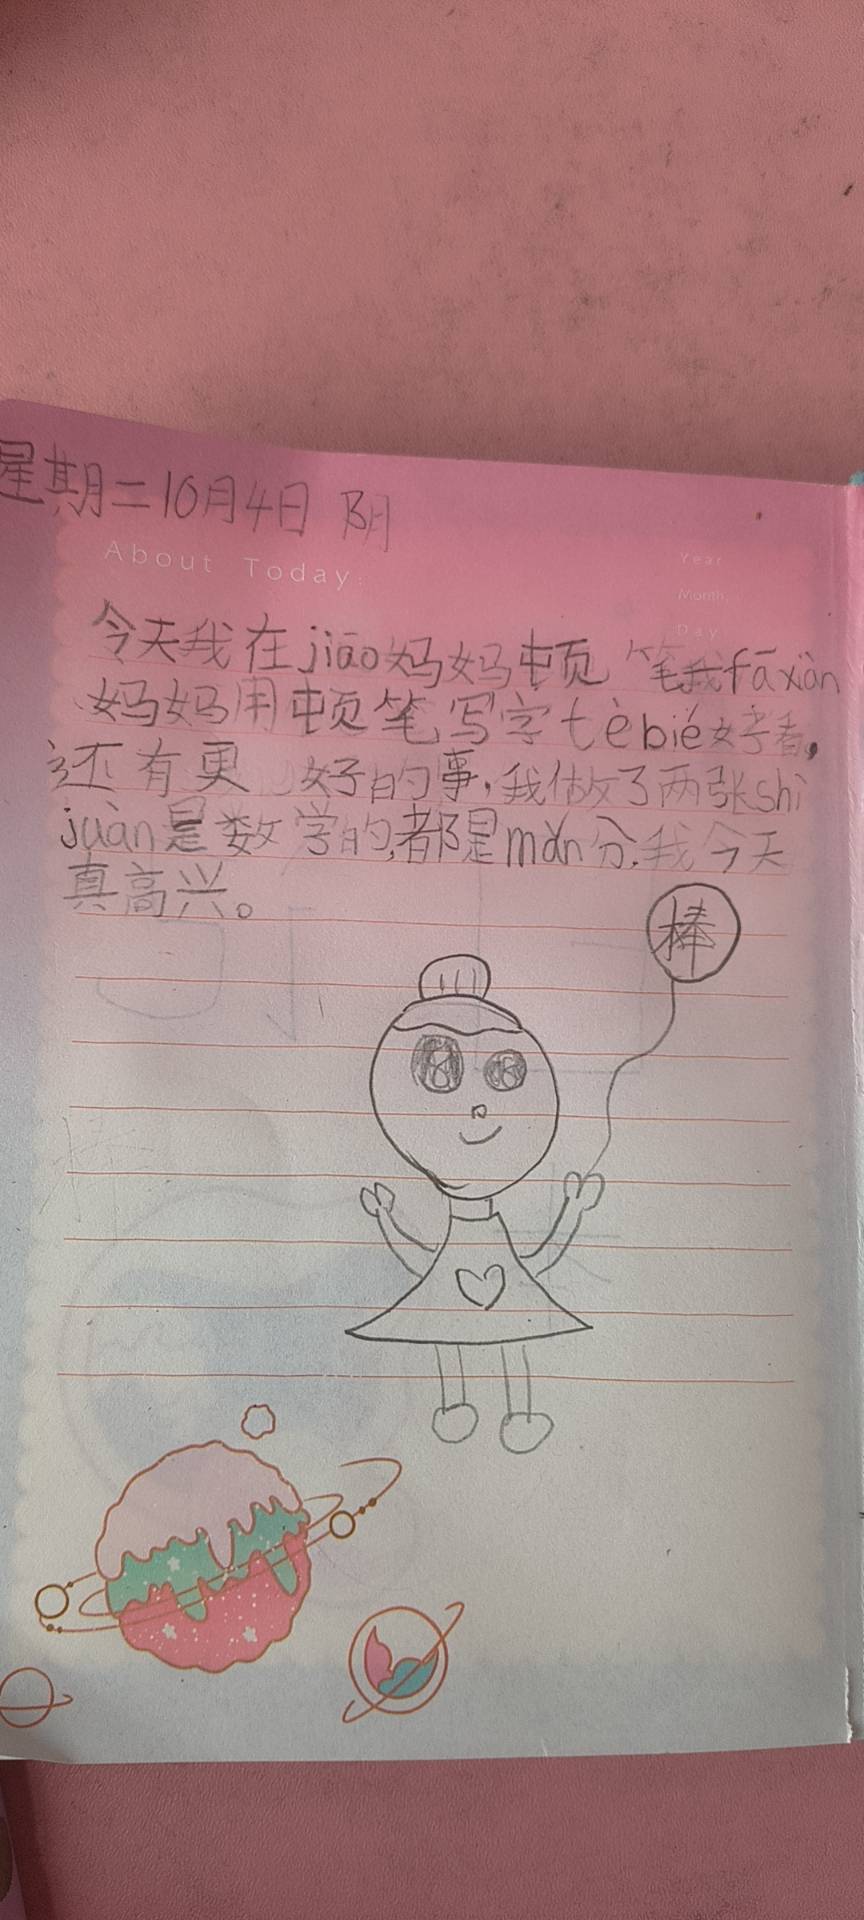 星期二10月4日 阴
About Today:
Year
Month
Day
今天我在jiāo妈妈顿笔我fāxiàn
妈妈用顿笔写字tèbié好看，
还有更好的事，我做了两张shì
juàn是数学的，都是mǎn分，我今天
真高兴。
棒